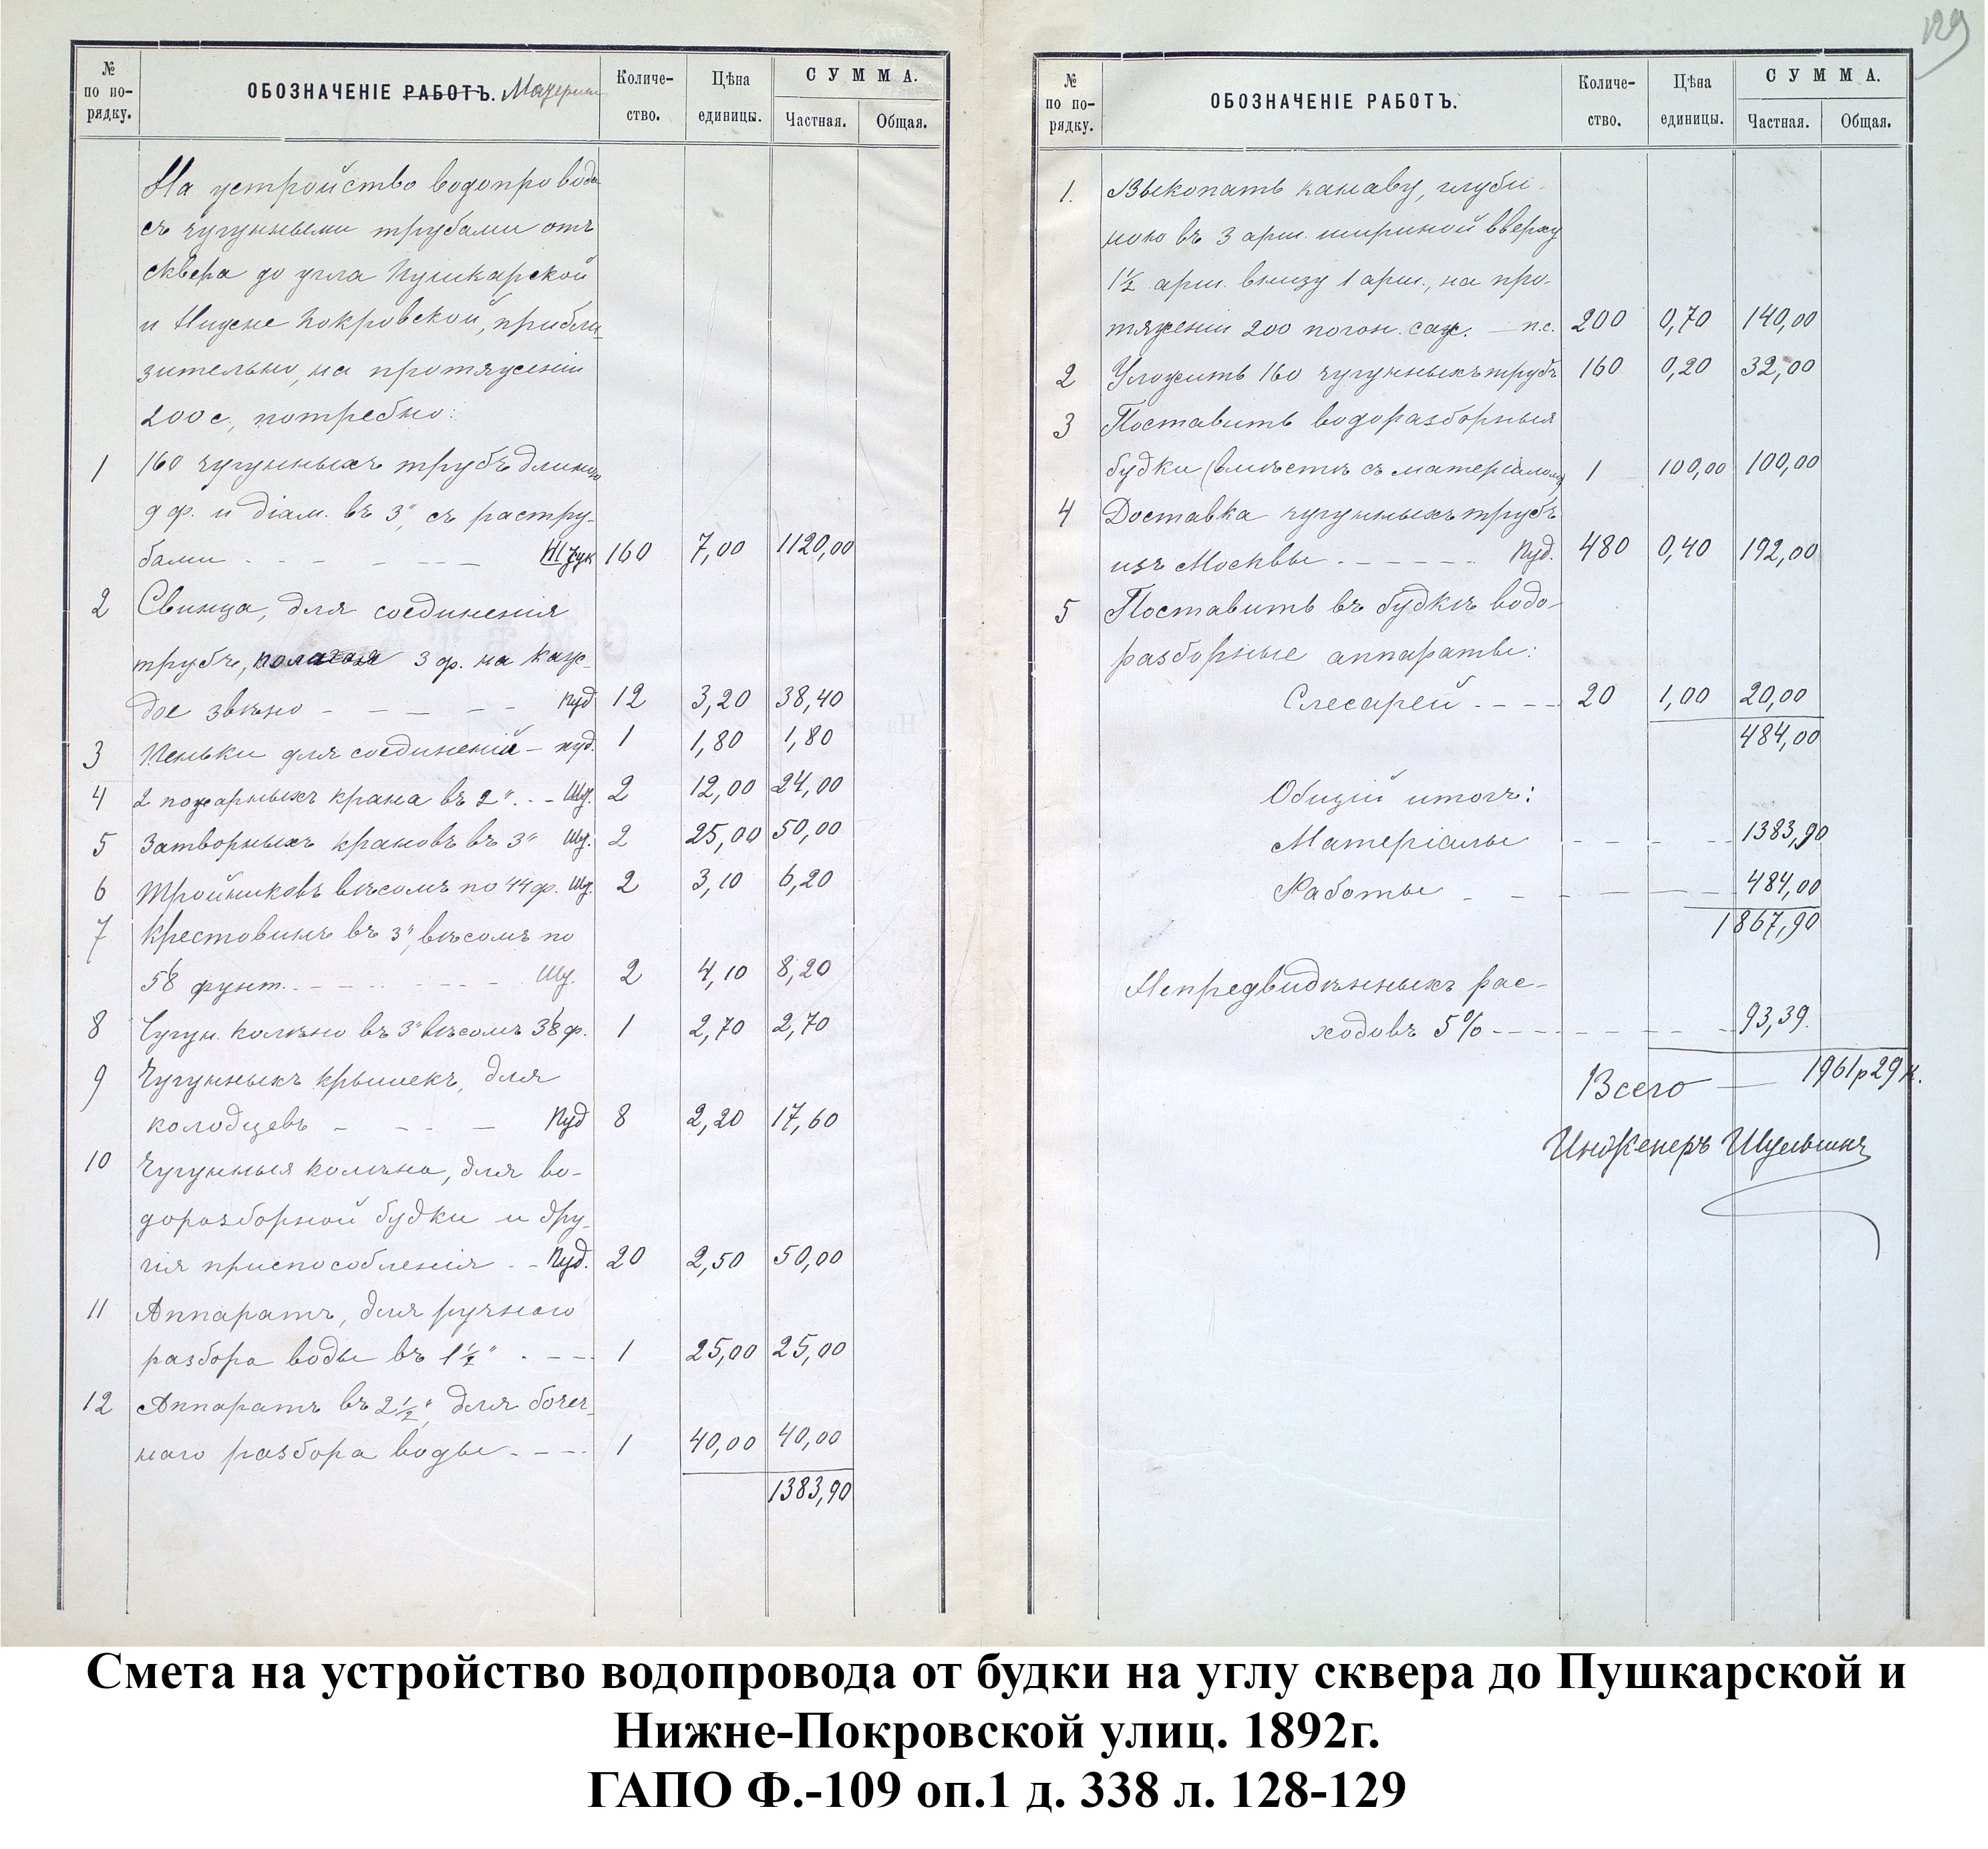 129
№ по по- рядку.
ОБОЗНАЧЕНІЕ РАБОТЪ. Матеріалы
Количе- ство.
Цѣна единицы.
СУММА.
Частная. Общая.
На устройство водопровода
съ чугунными трубами отъ
сквера до угла Пушкарской
и Нижне Покровской, прибли-
зительно, на протяженіи
200 с, потребно:
1 160 чугунныхъ трубъ длиною
9 ф. и діам. въ 3", съ растру-
бами - - - - Штук 160 7,00 1120,00
2 Свинца, для соединенія
трубъ, полагая 3 ф. на каж-
дое звѣно - - - - Пуд 12 3,20 38,40
3 Пеньки для соединеній - пуд. 1 1,80 1,80
4 2 пожарныхъ крана въ 2". - - Шт. 2 12,00 24,00
5 Затворныхъ крановъ въ 3" Шт. 2 25,00 50,00
6 Тройниковъ вѣсомъ по 44 ф. Шт. 2 3,10 6,20
7 Крестовинъ въ 3", вѣсомъ по
58 фунт. - - - - Шт. 2 4,10 8,20
8 Чугун. колѣно въ 3" вѣсомъ 38 ф. 1 2,70 2,70
9 Чугунныхъ крышекъ, для
колодцевъ - - - - Пуд 8 2,20 17,60
10 Чугунныя колѣна, для во-
доразборной будки и дру-
гія приспособленія - - Пуд. 20 2,50 50,00
11 Аппаратъ, для ручного
разбора воды въ 1½" - - - 1 25,00 25,00
12 Аппаратъ въ 2½", для бочеч-
наго разбора воды - - - 1 40,00 40,00
1383,90
№ по по- рядку.
ОБОЗНАЧЕНІЕ РАБОТЪ.
Количе- ство.
Цѣна единицы.
СУММА.
Частная. Общая.
1. Выкопать канаву, глуби-
ною въ 3 арш. шириной вверху
1½ арш. внизу 1 арш., на про-
тяженіи 200 погон. саж. — п.с. 200 0,70 140,00
2 Уложить 160 чугунныхъ трубъ 160 0,20 32,00
3 Поставить водоразборныя
будки (вмѣстѣ съ матеріаломъ) 1 100,00 100,00
4 Доставка чугунныхъ трубъ
изъ Москвы - - - - Пуд. 480 0,40 192,00
5 Поставить въ будкѣ водо-
разборные аппараты:
Слесарей - - - - 20 1,00 20,00
484,00
Общій итогъ:
Матеріалы - - - - 1383,90
Работы - - - - 484,00
1867,90
Непредвидѣнныхъ рас-
ходовъ 5% - - - - 93,39.
Всего — 1961 р 29 к.
Инженеръ Шульгинъ
Смета на устройство водопровода от будки на углу сквера до Пушкарской и
Нижне-Покровской улиц. 1892г.
ГАПО Ф.-109 оп.1 д. 338 л. 128-129